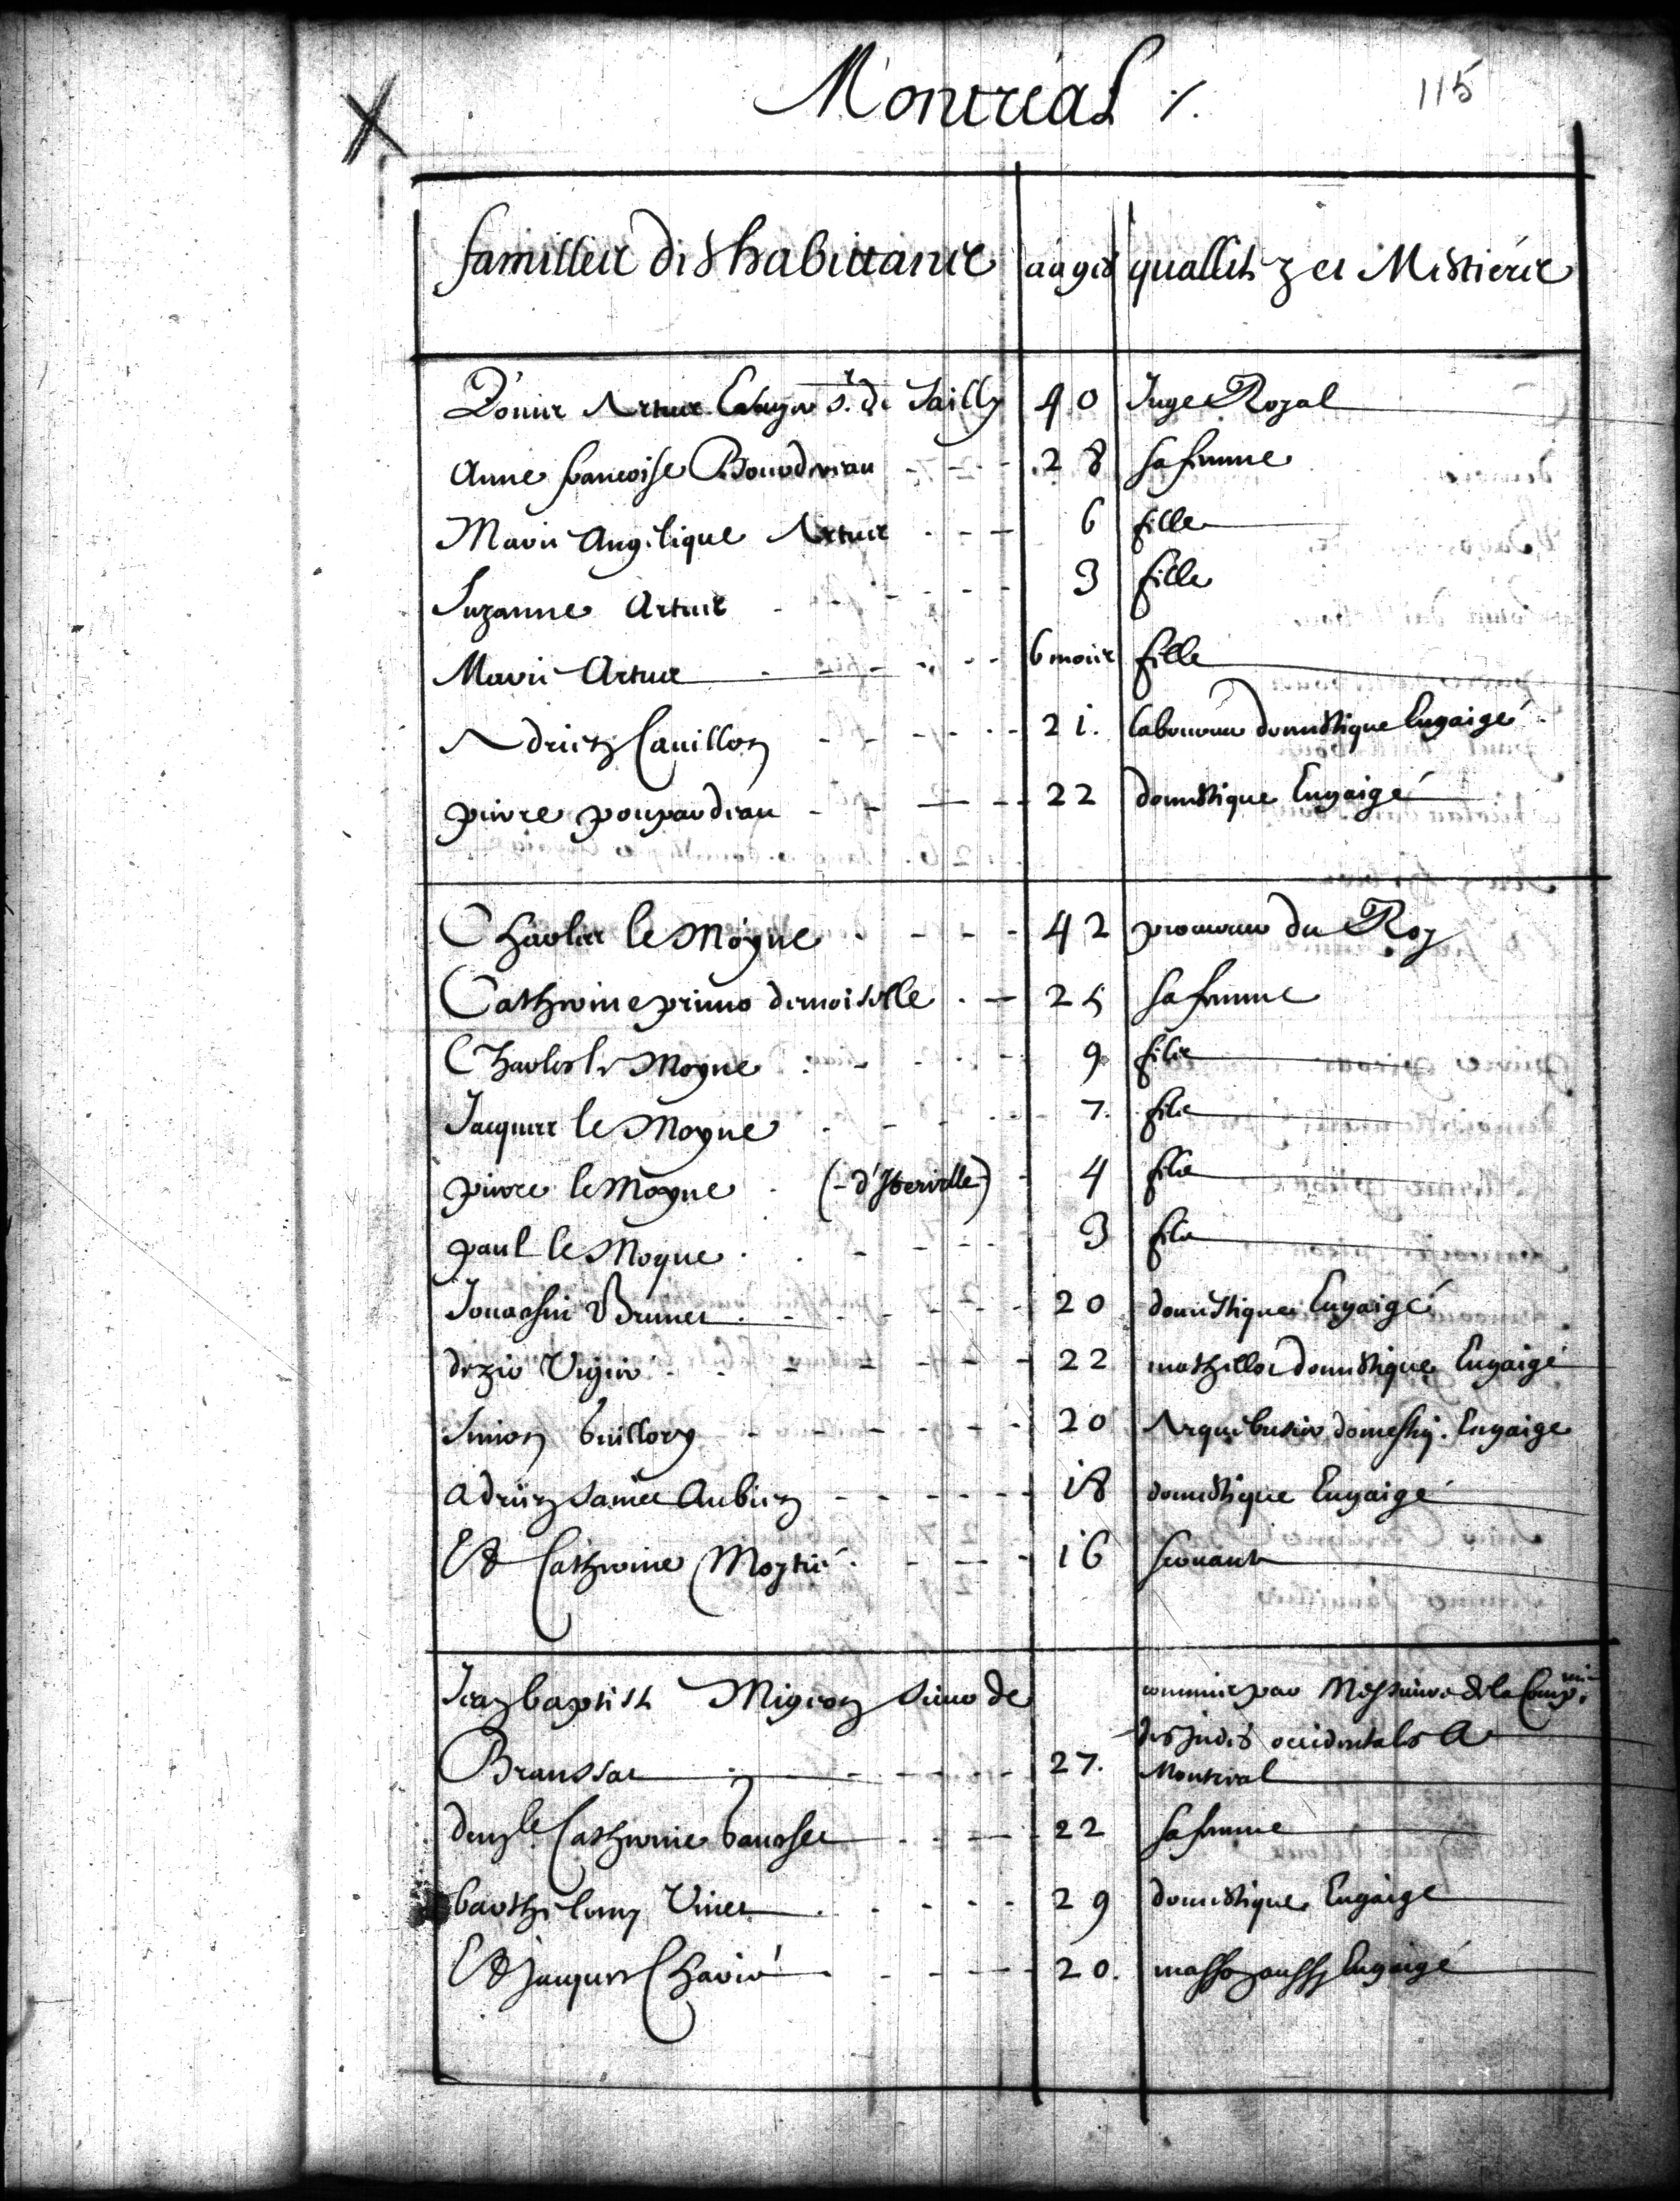 115
Montreal
familles des habittans aages quallitez et Mestiers
Artus Escuyer Sr. de Sailly 40 Juge Royal
Anne francoise Bourdereau 28 sa femme
Marie Angelique Artus 6 fille
Suzanne Artus 3 fille
Marie Artus 6 mois fille
Adrien 21. laboureur domestique Engaigé
pierre poupardeau 22 domestique Engaigé
Charles le Moyne 42 procureur du Roy
Catherine primo demoiselle 25 sa femme
Charles le Moyne 9 fils
Jacques le Moyne 7. fils
pierre le Moyne (d'Iberville) 4 fils
paul le Moyne 3 fils
Jouachin 20 domestique Engaigé
dezir Viger 22 mathellot domestique Engaigé
Simon Guillory 20 Arquibusier domestiq. Engaige
adrien Saint Aubin 18 domestique Engaigé
Et Catherine Moytié 16 seruante
Jean baptiste Migeon sieur de commis par Messieurs de la Compnie
des Indes occidentales A
Branssat 27. Montreal
demlle Catherine Gaucher 22 sa femme
barthelemy Vinet 29 domestique Engaigé
Et Jacques 20. masson aussy Engaigé